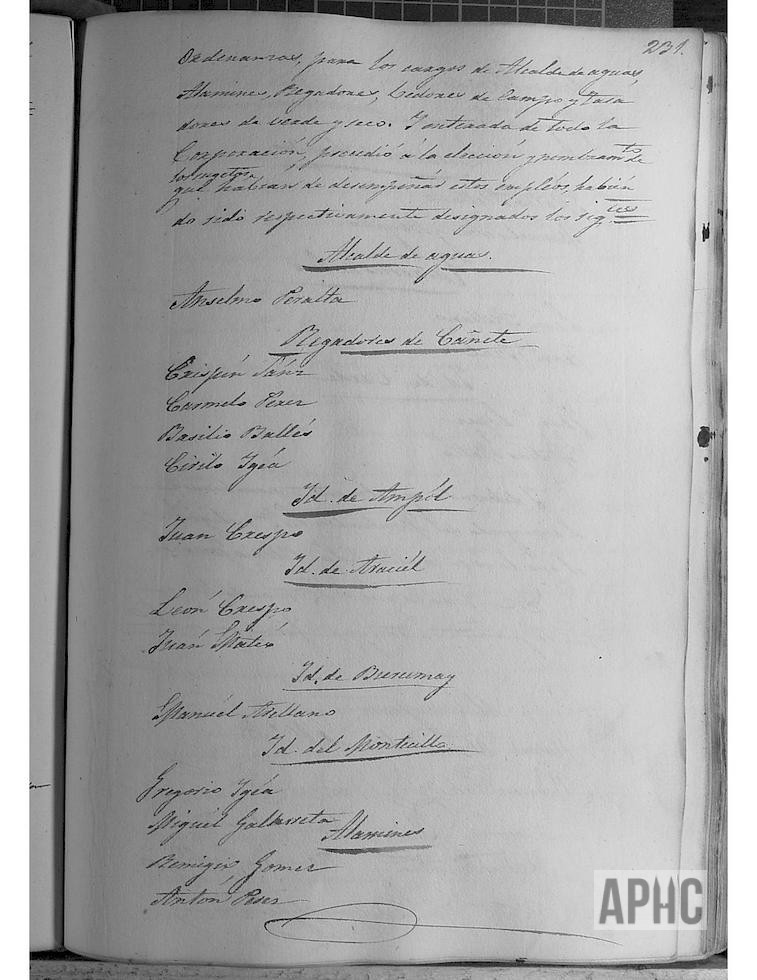 231.
Ordenanzas, para los cargos de Alcalde de aguas,
Alamines, Regadores, Vedores de Campo y Tasa
dores de verde y seco. Y enterada de todo la
Corporación, procedió a la elección y nombramto de
los sugetos
que habian de desempeñar estos empleos, habien
do sido respectivamente designados los sigtes
Alcalde de aguas.
Anselmo Peralta
Regadores de Cañete
Crispín Sánz
Carmelo Perez
Basilio Ballés
Cirilo Ygéa
Id. de Ampól
Juan Crespo
Id. de Araciél
León Crespo
Juán Mateo
Id. de Burumay
Manuél Arellano
Id. del Monticillo
Gregorio Ygéa
Miguél Galbarreta
Alamines
Remigio Gomez
Antón Perez
APHC